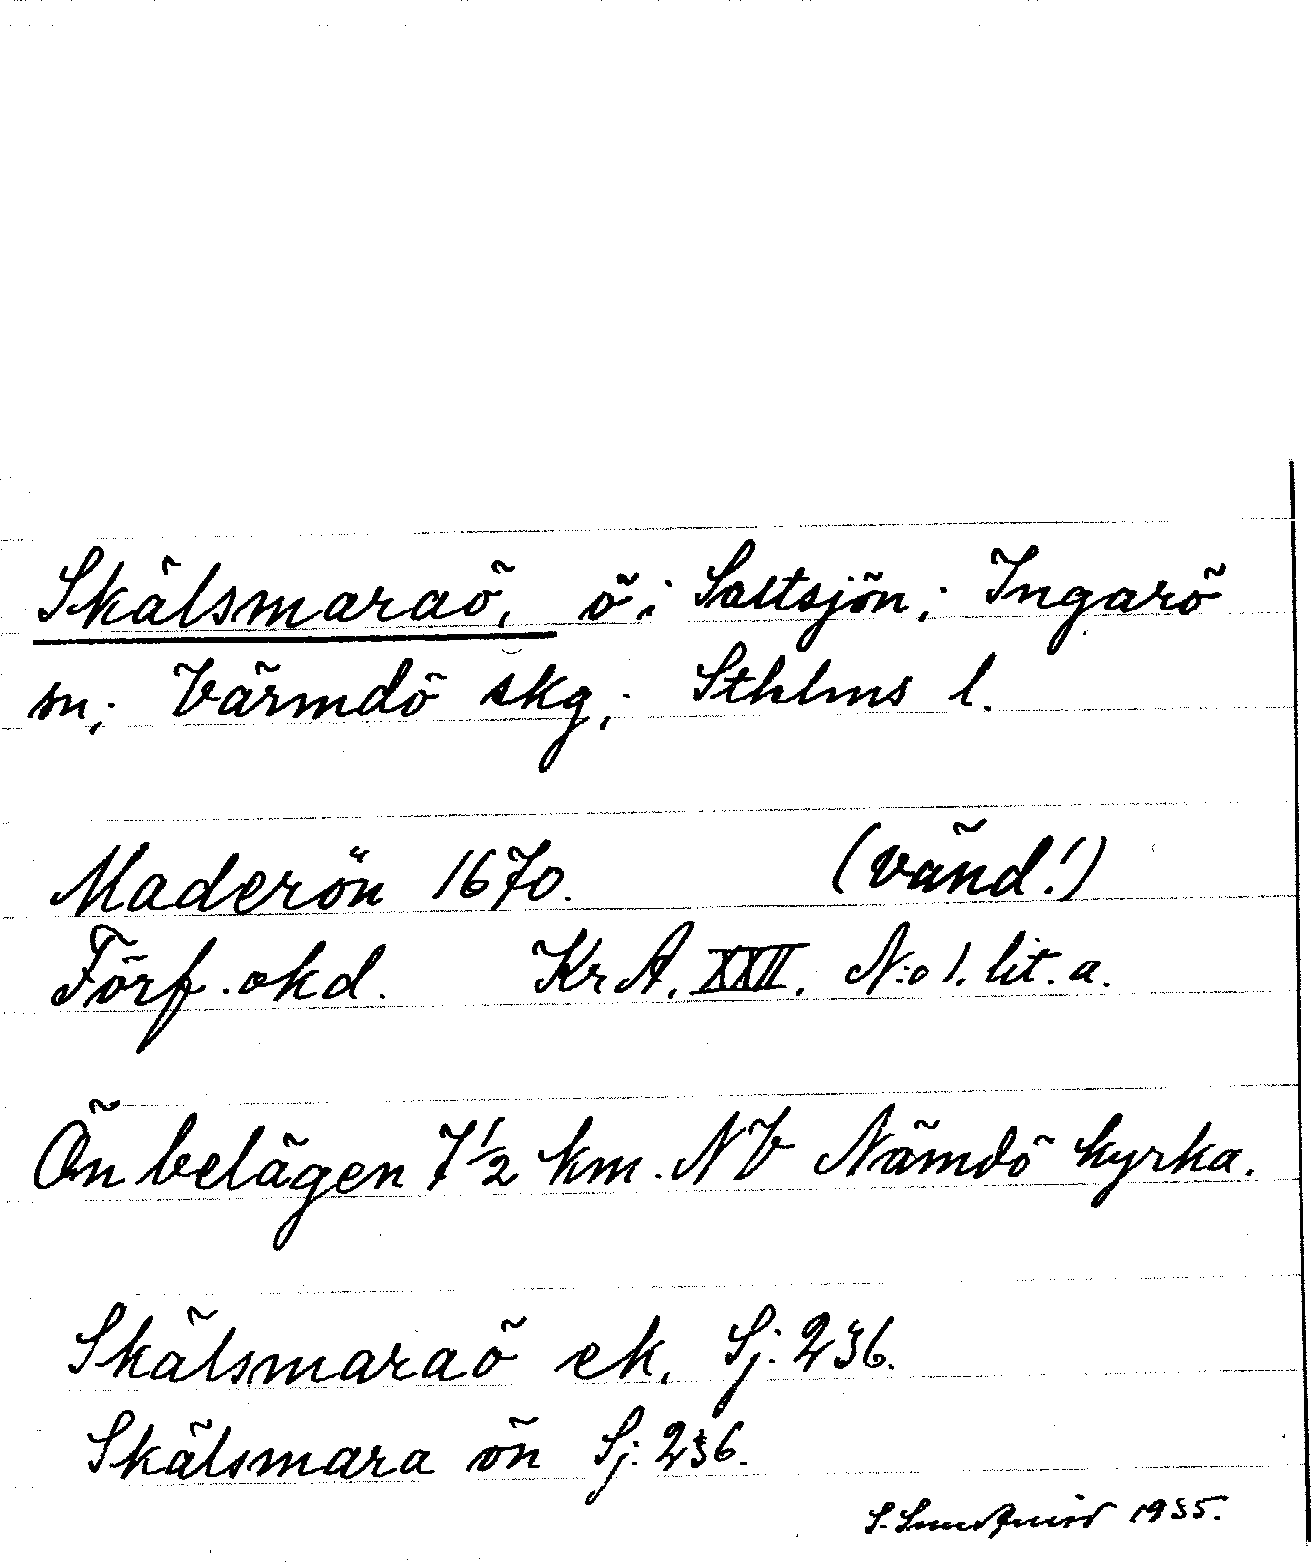 Skälsmaraö, ö i Saltsjön; Ingarö
sn; Värmdö skg; Sthlms l.
Maderön 1670. (vänd!)
Förf. okd. KrA. XXII. N:o 1. lit. a.
Ön belägen 7 1/2 km. NV Nämdö kyrka.
Skälsmaraö ek. Sj. 236.
Skälsmara ön Sj. 236.
S. Lundqvist 1935.